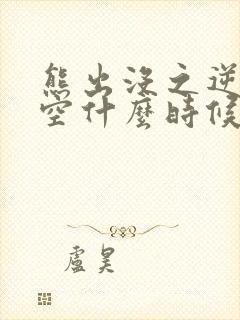 熊出沒之逆
空什麼時候
盧昊